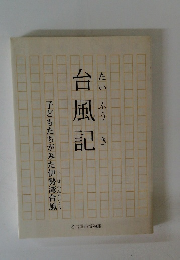 台風記
たいふうき
子どもたちがみた伊勢湾台風